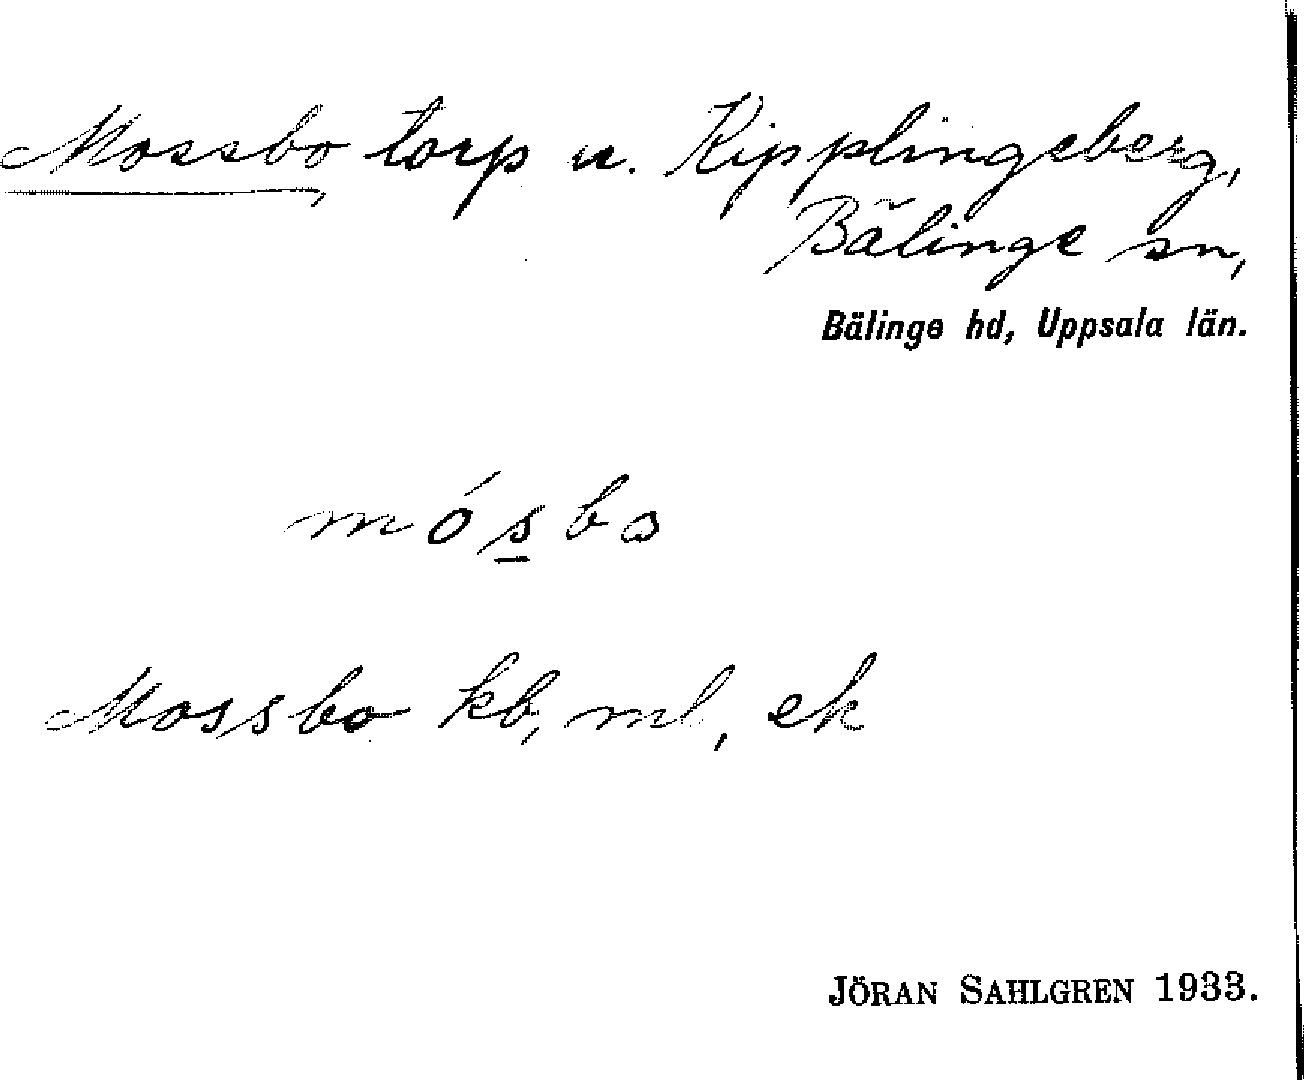 Mossbo torp u. Kipplingeberg,
Bälinge sn,
Bälinge hd, Uppsala län.
mósbo
Mossbo kb, ml, ek
JÖRAN SAHLGREN 1933.